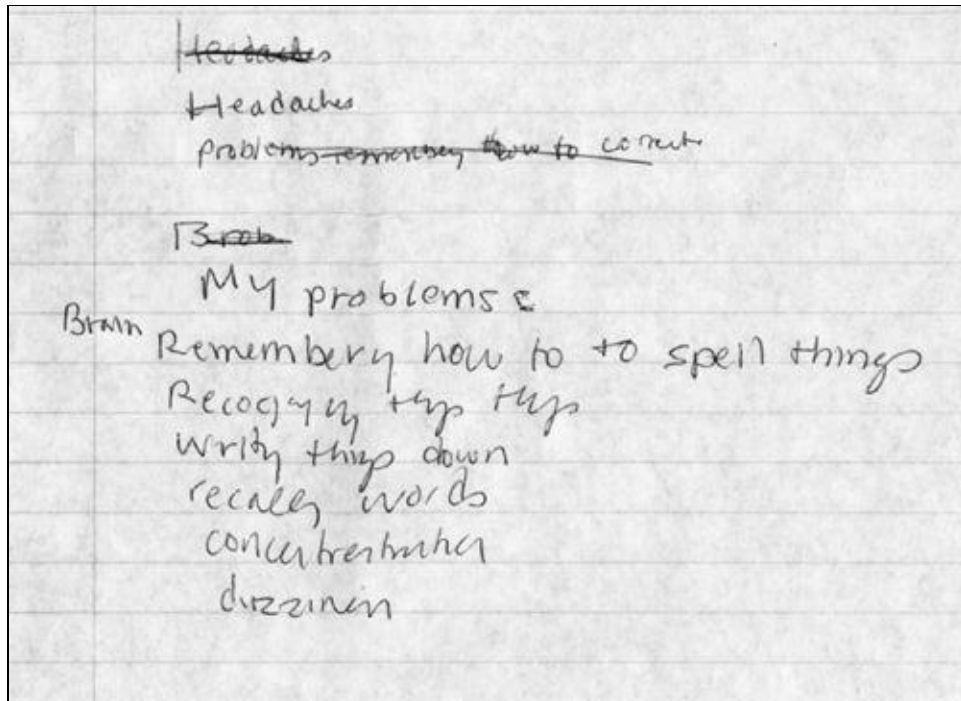 Headaches
Headaches
problems remembery how to correct
Brob
My problems:
Brain
Remembery how to to spell things
Recogyny thgs thgs
writy thigs down
recally words
concentrbation
dizzinen